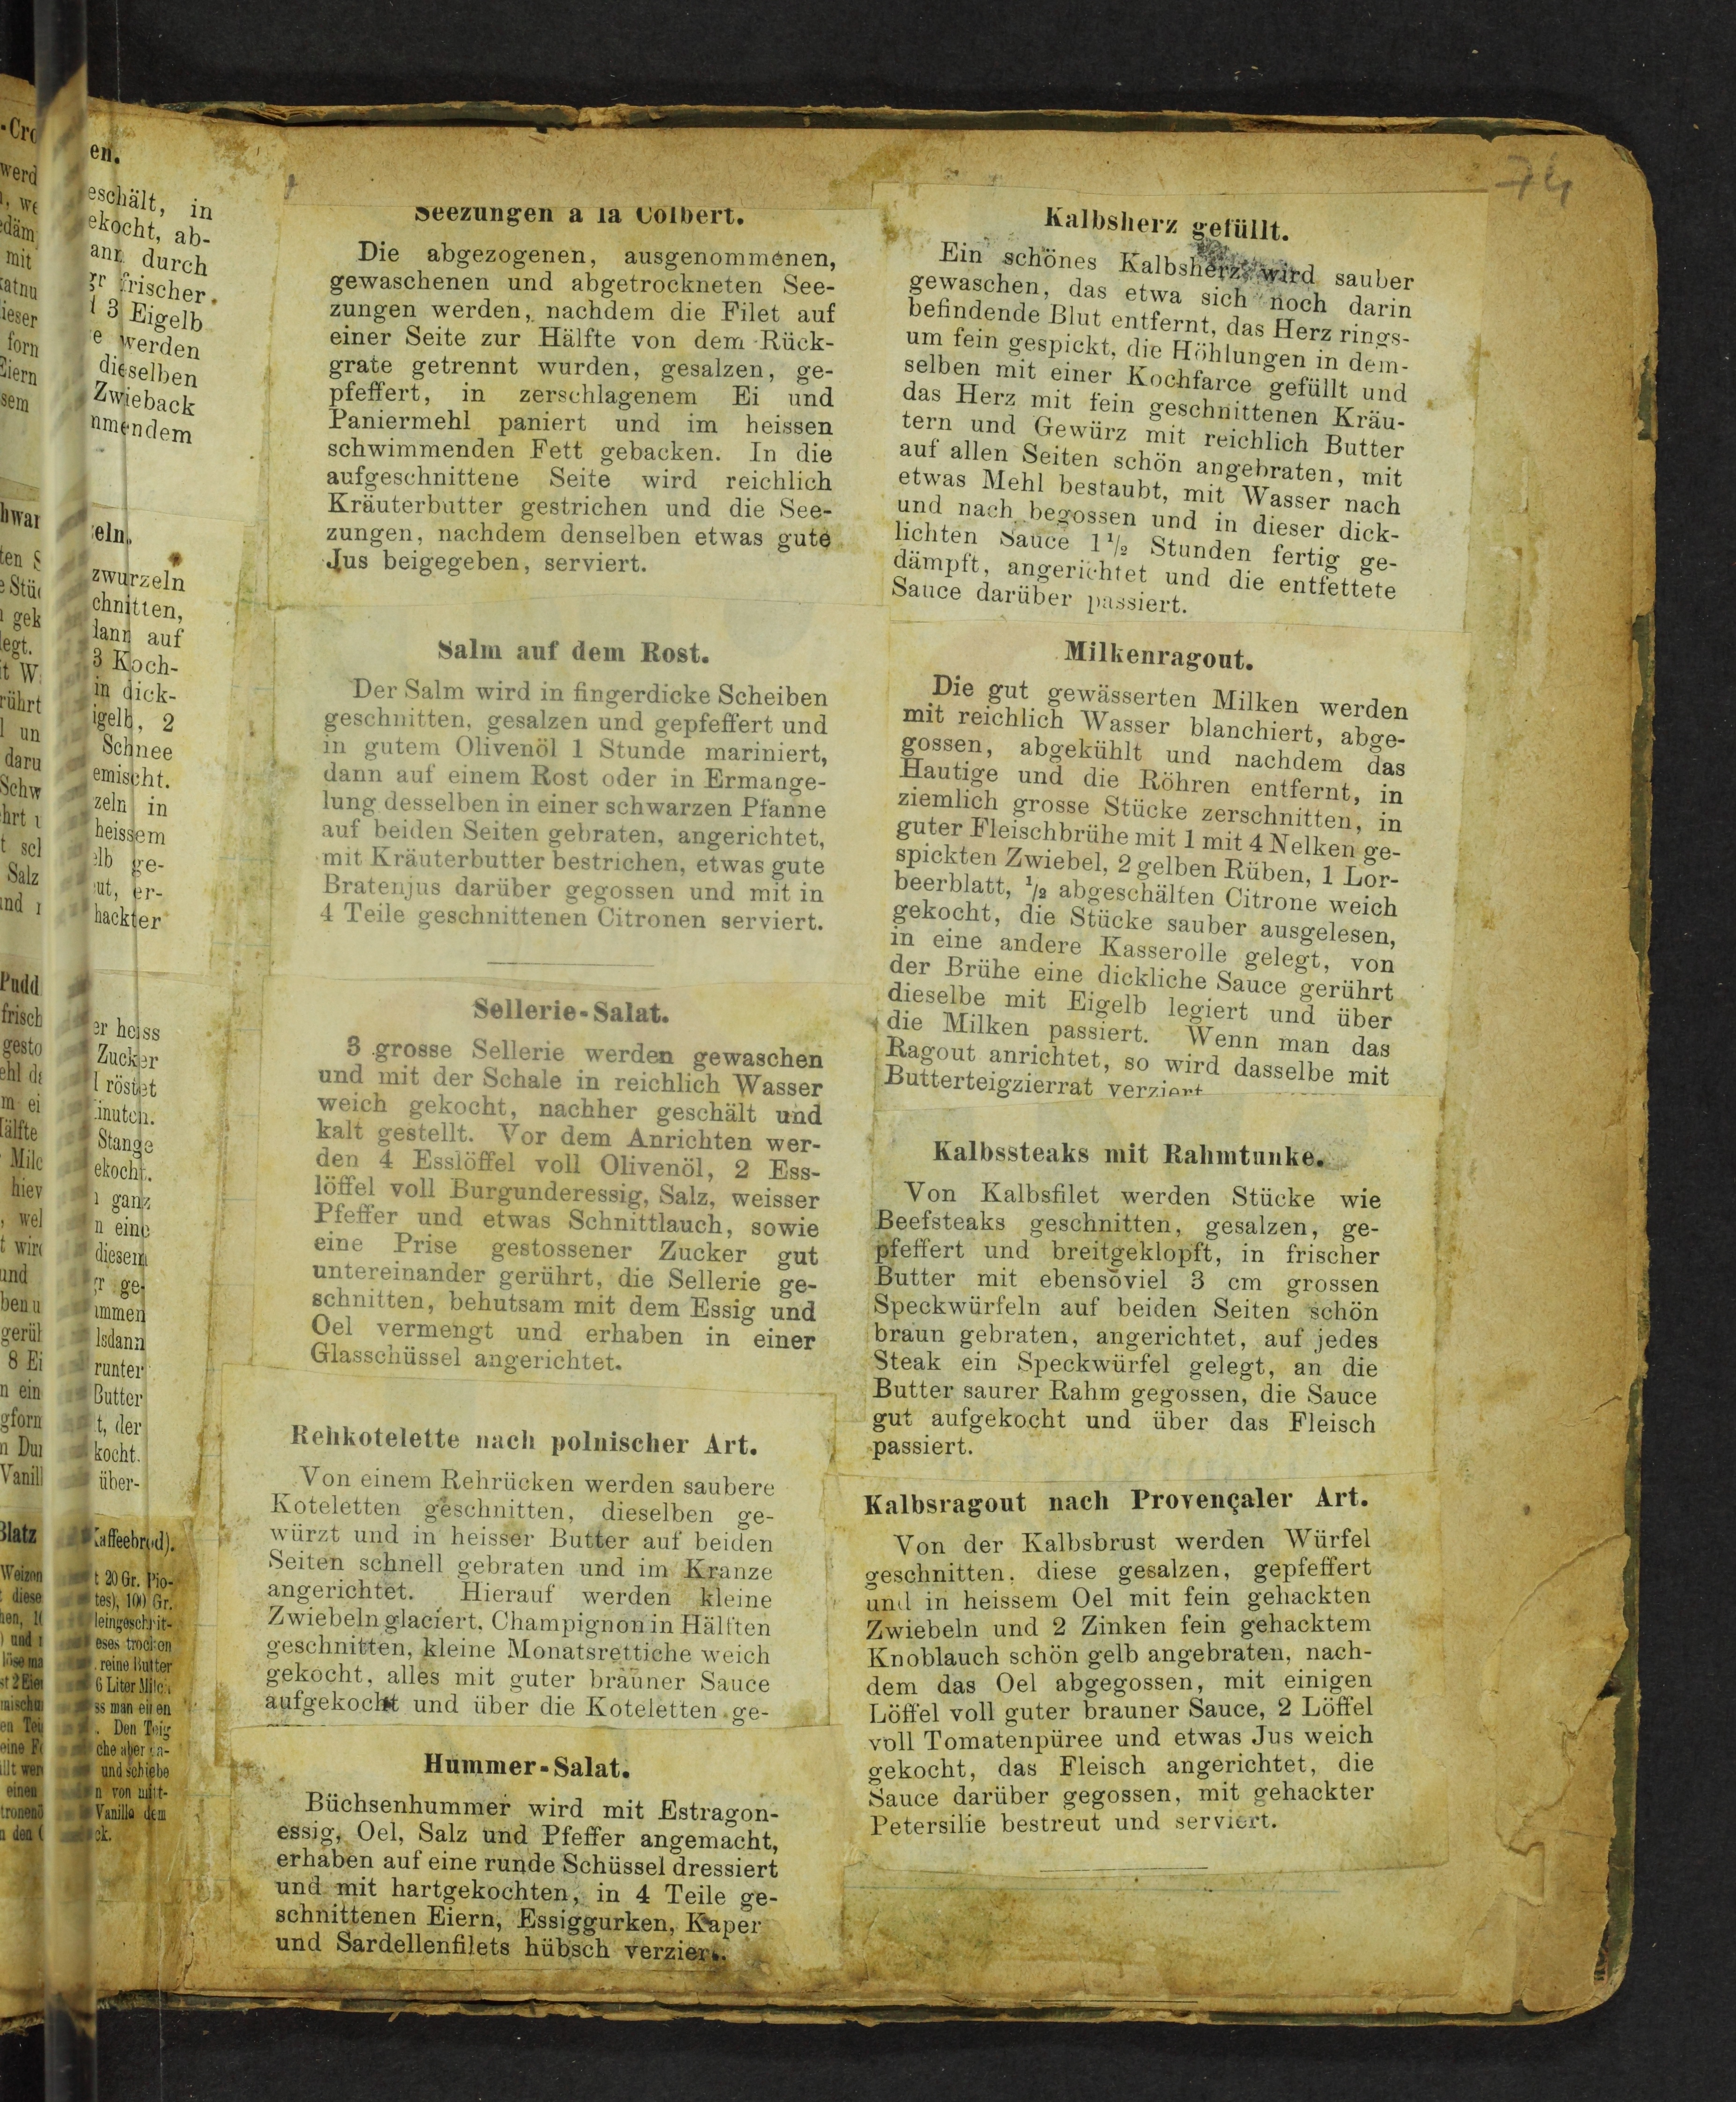 74
Seezungen à la Colbert.
Die abgezogenen, ausgenommenen,
gewaschenen und abgetrockneten See-
zungen werden, nachdem die Filet auf
einer Seite zur Hälfte von dem Rück-
grate getrennt wurden, gesalzen, ge-
pfeffert, in zerschlagenem Ei und
Paniermehl paniert und im heissen
schwimmenden Fett gebacken. In die
aufgeschnittene Seite wird reichlich
Kräuterbutter gestrichen und die See-
zungen, nachdem denselben etwas gute
Jus beigegeben, serviert.
Salm auf dem Rost.
Der Salm wird in fingerdicke Scheiben
geschnitten, gesalzen und gepfeffert und
in gutem Olivenöl 1 Stunde mariniert,
dann auf einem Rost oder in Ermange-
lung desselben in einer schwarzen Pfanne
auf beiden Seiten gebraten, angerichtet,
mit Kräuterbutter bestrichen, etwas gute
Bratenjus darüber gegossen und mit in
4 Teile geschnittenen Citronen serviert.
Sellerie-Salat.
3 grosse Sellerie werden gewaschen
und mit der Schale in reichlich Wasser
weich gekocht, nachher geschält und
kalt gestellt. Vor dem Anrichten wer-
den 4 Esslöffel voll Olivenöl, 2 Ess-
löffel voll Burgunderessig, Salz, weisser
Pfeffer und etwas Schnittlauch, sowie
eine Prise gestossener Zucker gut
untereinander gerührt, die Sellerie ge-
schnitten, behutsam mit dem Essig und
Oel vermengt und erhaben in einer
Glasschüssel angerichtet.
Rehkotelette nach polnischer Art.
Von einem Rehrücken werden saubere
Koteletten geschnitten, dieselben ge-
würzt und in heisser Butter auf beiden
Seiten schnell gebraten und im Kranze
angerichtet. Hierauf werden kleine
Zwiebeln glaciert, Champignon in Hälften
geschnitten, kleine Monatsrettiche weich
gekocht, alles mit guter brauner Sauce
aufgekocht und über die Koteletten ge-
Hummer-Salat.
Büchsenhummer wird mit Estragon-
essig, Oel, Salz und Pfeffer angemacht,
erhaben auf eine runde Schüssel dressiert
und mit hartgekochten, in 4 Teile ge-
schnittenen Eiern, Essiggurken, Kaper
und Sardellenfilets hübsch verziert.
Kalbsherz gefüllt.
Ein schönes Kalbsherz wird sauber
gewaschen, das etwa sich noch darin
befindende Blut entfernt, das Herz rings-
um fein gespickt, die Höhlungen in dem-
selben mit einer Kochfarce gefüllt und
das Herz mit fein geschnittenen Kräu-
tern und Gewürz mit reichlich Butter
auf allen Seiten schön angebraten, mit
etwas Mehl bestaubt, mit Wasser nach
und nach begossen und in dieser dick-
lichten Sauce 1 1/2 Stunden fertig ge-
dämpft, angerichtet und die entfettete
Sauce darüber passiert.
Milkenragout.
Die gut gewässerten Milken werden
mit reichlich Wasser blanchiert, abge-
gossen, abgekühlt und nachdem das
Hautige und die Röhren entfernt, in
ziemlich grosse Stücke zerschnitten, in
guter Fleischbrühe mit 1 mit 4 Nelken ge-
spickten Zwiebel, 2 gelben Rüben, 1 Lor-
beerblatt, 1/2 abgeschälten Citrone weich
gekocht, die Stücke sauber ausgelesen,
in eine andere Kasserolle gelegt, von
der Brühe eine dickliche Sauce gerührt
dieselbe mit Eigelb legiert und über
die Milken passiert. Wenn man das
Ragout anrichtet, so wird dasselbe mit
Butterteigzierrat verziert
Kalbssteaks mit Rahmtunke.
Von Kalbsfilet werden Stücke wie
Beefsteaks geschnitten, gesalzen, ge-
pfeffert und breitgeklopft, in frischer
Butter mit ebensoviel 3 cm grossen
Speckwürfeln auf beiden Seiten schön
braun gebraten, angerichtet, auf jedes
Steak ein Speckwürfel gelegt, an die
Butter saurer Rahm gegossen, die Sauce
gut aufgekocht und über das Fleisch
passiert.
Kalbsragout nach Provençaler Art.
Von der Kalbsbrust werden Würfel
geschnitten, diese gesalzen, gepfeffert
und in heissem Oel mit fein gehackten
Zwiebeln und 2 Zinken fein gehacktem
Knoblauch schön gelb angebraten, nach-
dem das Oel abgegossen, mit einigen
Löffel voll guter brauner Sauce, 2 Löffel
voll Tomatenpüree und etwas Jus weich
gekocht, das Fleisch angerichtet, die
Sauce darüber gegossen, mit gehackter
Petersilie bestreut und serviert.